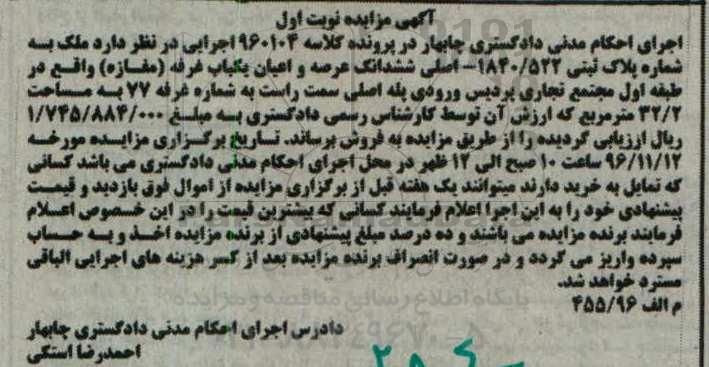 آگهی مزایده نوبت اول
اجرای احکام مدنی دادگستری چابهار در پرونده کلاسه ۹۶۰۱۰۴ اجرایی در نظر دارد ملک به
شماره پلاک ثبتی ۱۸۴۰/۵۲۲- اصلی ششدانگ عرصه و اعیان یکباب غرفه (مغازه) واقع در
طبقه اول مجتمع تجاری پردیس ورودی پله اصلی سمت راست به شماره غرفه ۷۷ به مساحت
۳۲/۲ مترمربع که ارزش آن توسط کارشناس رسمی دادگستری به مبلغ ۱/۷۴۵/۸۸۴/۰۰۰
ریال ارزیابی گردیده را از طریق مزایده به فروش برساند. تاریخ برگزاری مزایده مورخه
۹۶/۱۱/۱۲ ساعت ۱۰ صبح الی ۱۲ ظهر در محل اجرای احکام مدنی دادگستری می باشد کسانی
که تمایل به خرید دارند میتوانند یک هفته قبل از برگزاری مزایده از اموال فوق بازدید و قیمت
پیشنهادی خود را به این اجرا اعلام فرمایند کسانی که بیشترین قیمت را در این خصوص اعلام
فرمایند برنده مزایده می باشند و ده درصد مبلغ پیشنهادی از برنده مزایده اخذ و به حساب
سپرده واریز می گردد و در صورت انصراف برنده مزایده بعد از کسر هزینه های اجرایی الباقی
مسترد خواهد شد.
پایگاه اطلاع رسانی مناقصه و مزایده
م الف ۴۵۵/۹۶
دادرس اجرای احکام مدنی دادگستری چابهار
احمدرضا استکی